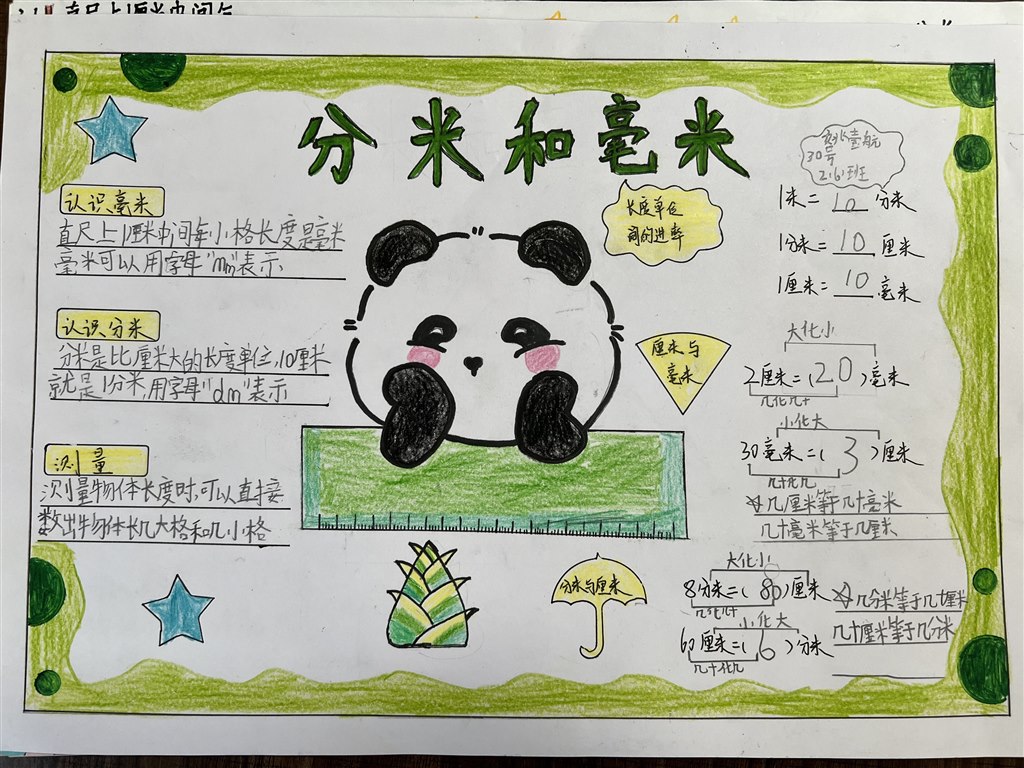 分米和毫米
30号
2.(6)班
认识毫米
直尺上1厘米中间每小格长度是毫米
毫米可以用字母"mm"表示
认识分米
分米是比厘米大的长度单位,10厘米
就是1分米,用字母"dm"表示
测量
测量物体长度时,可以直接
数出物体长几大格和几小格
长度单位
间的进率
1米=10分米
1分米=10厘米
1厘米=10毫米
厘米与
毫米
大化小
2厘米=(20)毫米
几化几十
小化大
30毫米=(3)厘米
几十化几
几厘米等于几十毫米
几十毫米等于几厘米
分米与厘米
大化小
8分米=(80)厘米
几化几十
小化大
60厘米=(6)分米
几十化几
几分米等于几十厘米
几十厘米等于几分米